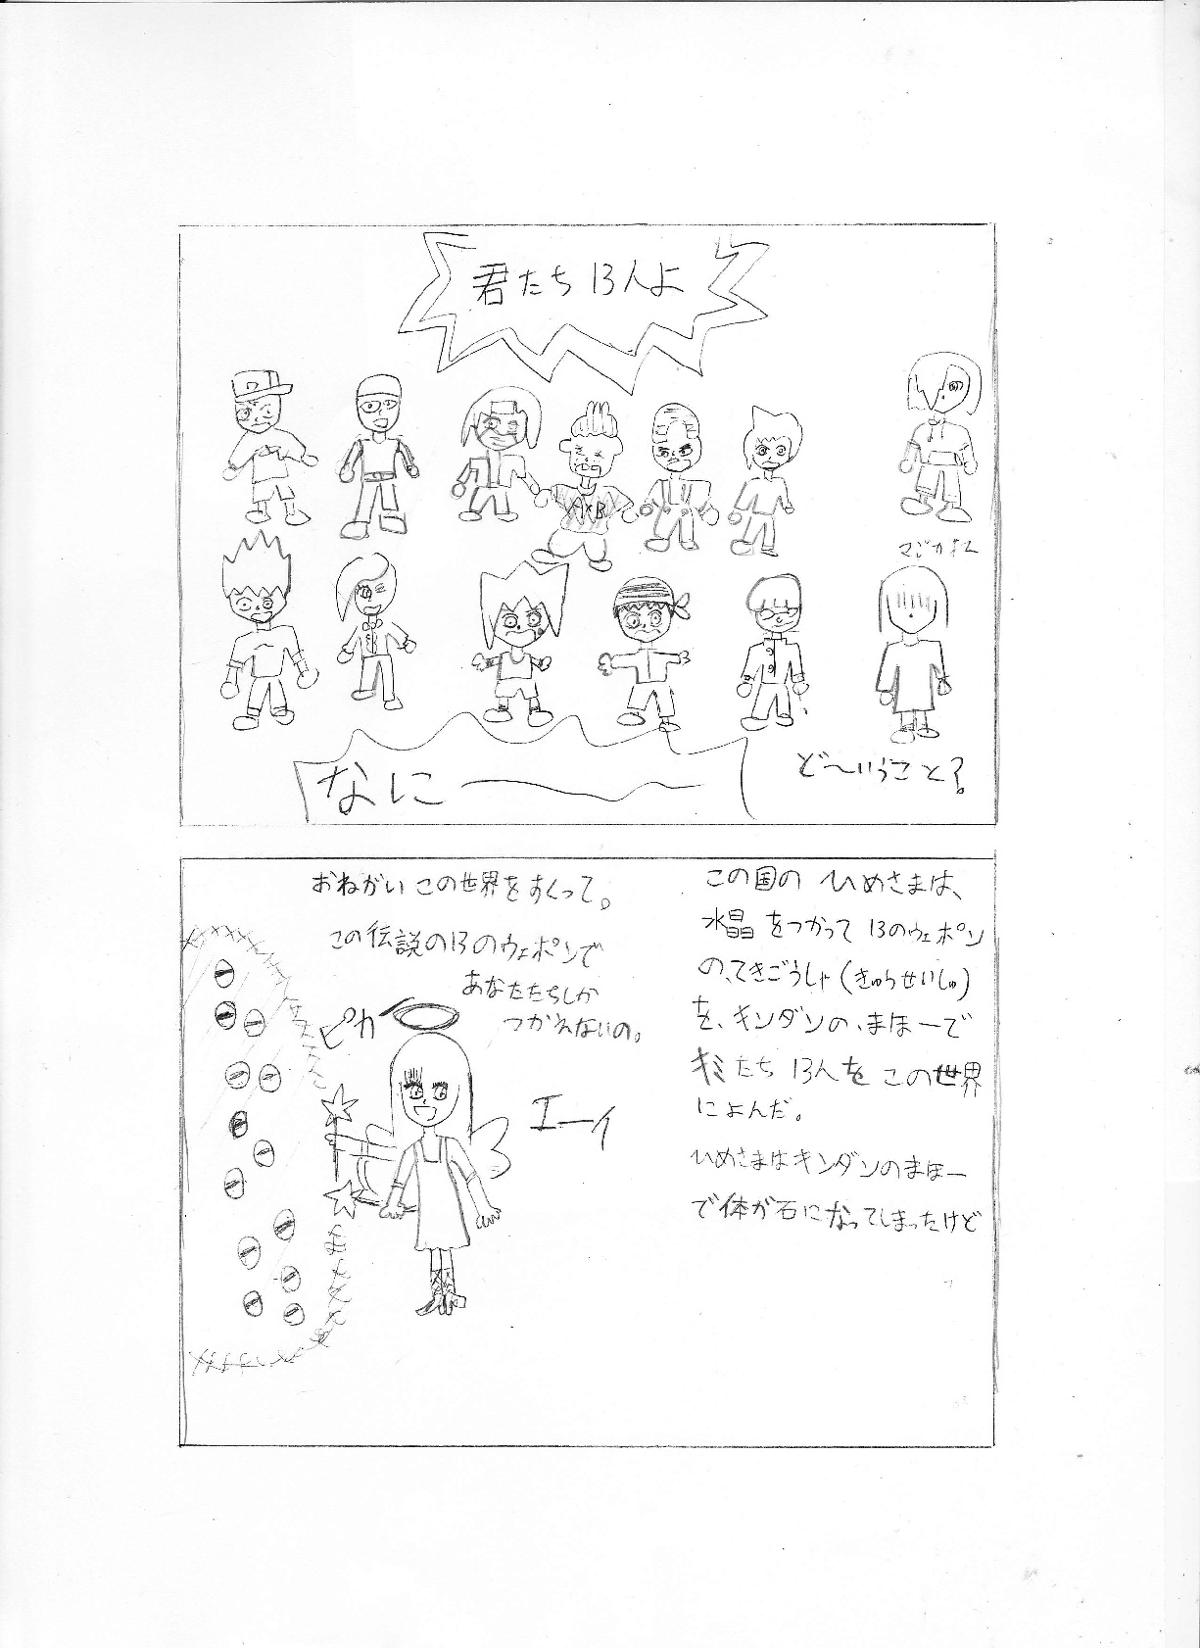 君たち13人よ
AxB
なに〜
ど〜いうこと?
この国の ひめさまは、
水晶をつかって 13のウェポン
の、てきごうしゃ(きゅうせいしゅ)
を、キンダンの、まほーで
キミたち 13人を この世界
によんだ。
ひめさまはキンダンのまほー
で体が石になってしまったけど
おねがい この世界をすくって。
この伝説の13のウェポンで
あなたたちしか
つかえないの。
ピカ
エーイ